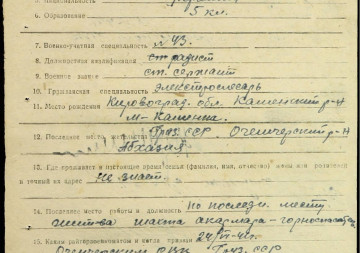 5. Образование 5 кл.
7. Военно-учетная специальность № 43.
8. Должностная квалификация ст. радист
9. Военное звание ст. сержант
10. Гражданская специальность электрослесарь
11. Место рождения Кировоград. обл. Каменский р-н
м- Каменка.
12. Последнее место жительства Груз. ССР. Очемчирский р-н
Абхазия
13. Где проживает в настоящее время семья (фамилия, имя, отчество) жены или родителей
и точный их адрес не знает.
14. Последнее место работы и должность по последн. месту
жит-ва шахта акармара-
15. Каким райвоенкоматом и когда призван 24/VI-41г.
Очемчирским РВК Груз. ССР